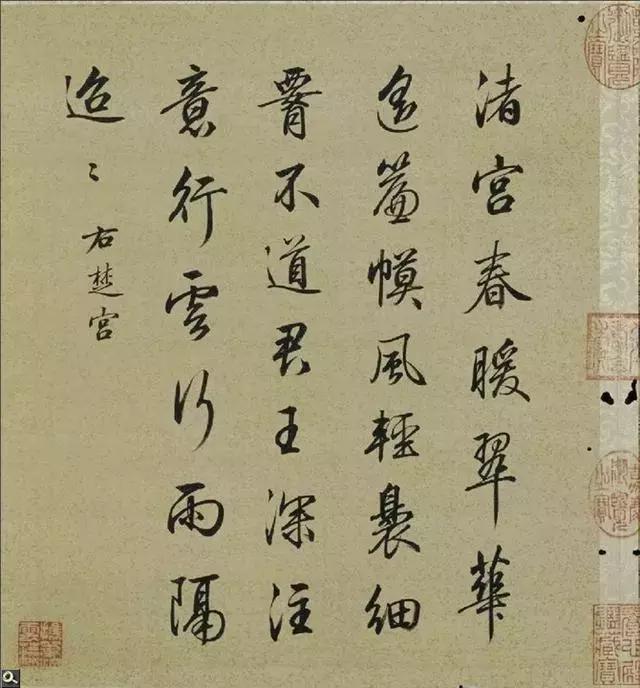 渚宫春暖翠華
遙簾幙風輕裊細
腰不道君王深注
意行雲行雨隔
迢〻
右楚宫